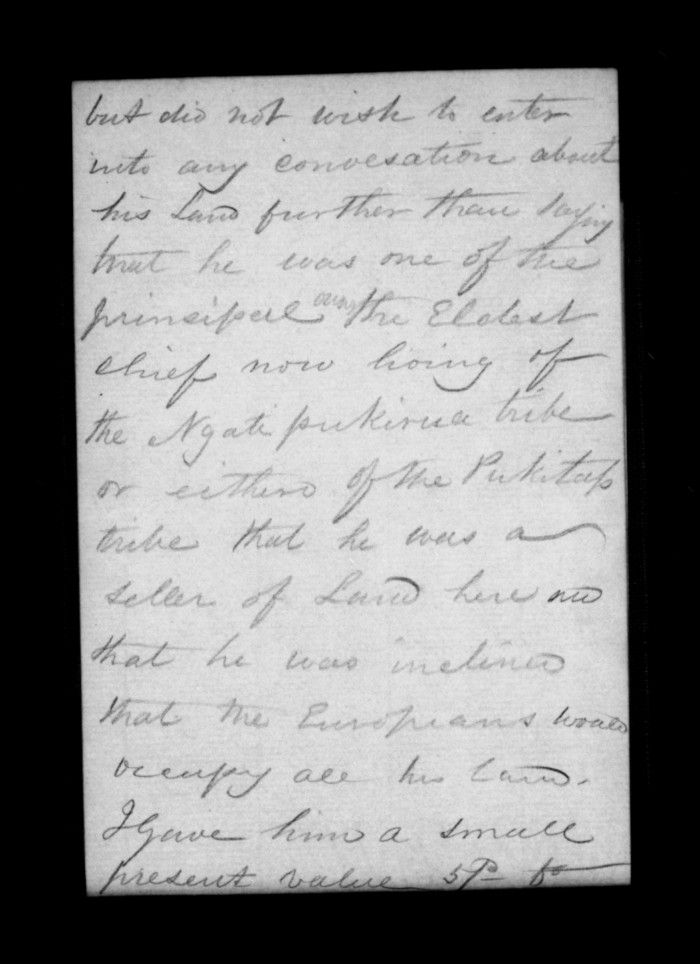 but did not wish to enter
into any convesation about
his Land further than saying
that he was one of the
prinsipeel the Eldest
chief now living of
the Ngati pukirua tribe
or eithero of the Pukitap
tribe that he was a
seller of Land here and
that he was inclined
that the Europeans would
occupy all his land.
I Gave him a small
present value 5/- to